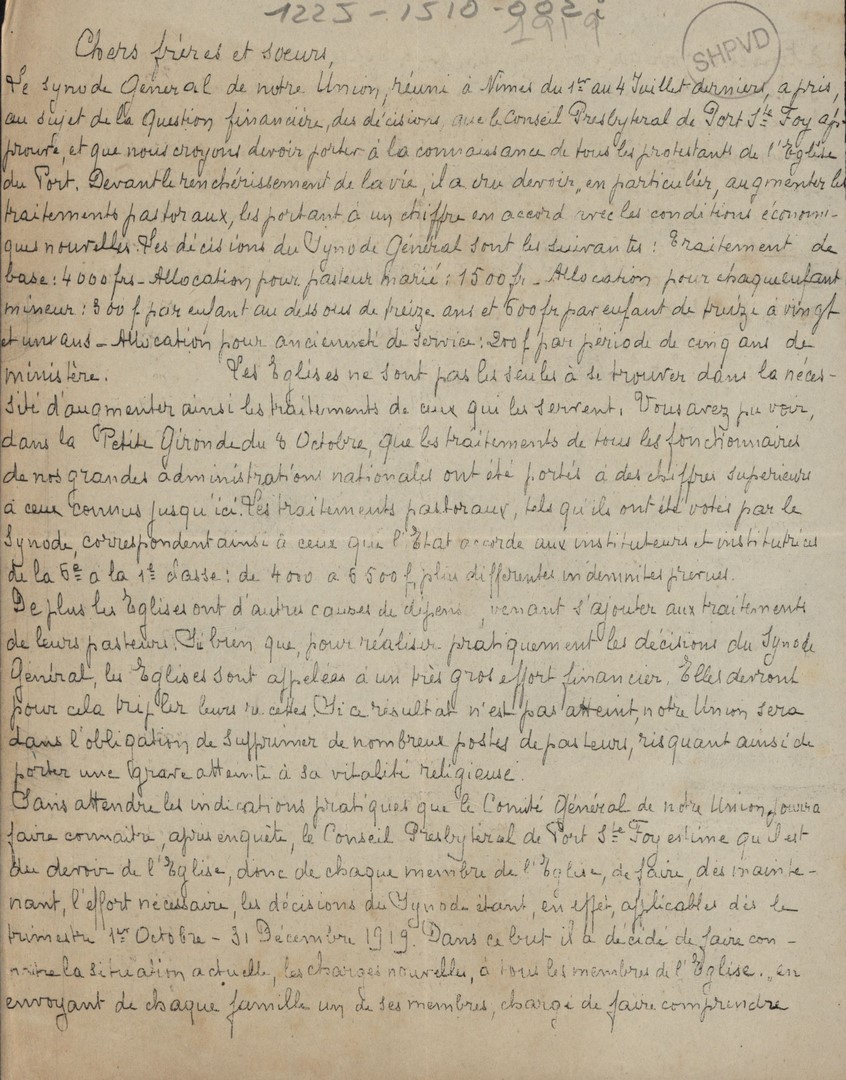 1225-1510-002i
1919
SHPVD
Chers frères et soeurs,
Le Synode Général de notre Union, réuni à Nimes du 1er au 4 Juillet derniers, a pris,
au sujet de la Question financière, des décisions que le Conseil Presbytéral de Port Ste Foy ap-
prouve, et que nous croyons devoir porter à la connaissance de tous les protestants de l'Eglise
du Port. Devant le renchérissement de la vie, il a cru devoir, en particulier, augmenter les
traitements pastoraux, les portant à un chiffre en accord avec les conditions économi-
ques nouvelles. Les décisions du Synode Général sont les suivantes : Traitement de
base : 4000 frs - Allocation pour pasteur marié : 1500 fr - Allocation pour chaque enfant
mineur : 300 f par enfant au dessous de treize ans et 600 fr par enfant de treize à vingt
et un ans - Allocation pour ancienneté de service : 200 f par période de cinq ans de
ministère. Les Eglises ne sont pas les seules à se trouver dans la néces-
sité d'augmenter ainsi les traitements de ceux qui les servent. Vous avez pu voir,
dans la Petite Gironde du 8 Octobre, que les traitements de tous les fonctionnaires
de nos grandes administrations nationales ont été portés à des chiffres supérieurs
à ceux connus jusqu'ici. Les traitements pastoraux, tels qu'ils ont été votés par le
Synode, correspondent ainsi à ceux que l'Etat accorde aux instituteurs et institutrices
de la 6e à la 1e classe : de 4000 à 6500 f, plus differentes indemnites prevues.
De plus les Eglises ont d'autres causes de dépens , venant s'ajouter aux traitements
de leurs pasteurs. Si bien que, pour réaliser pratiquement les décisions du Synode
Général, les Eglises sont appelées à un très gros effort financier. Elles devront
pour cela tripler leurs recettes. Si ce résultat n'est pas atteint, notre Union sera
dans l'obligation de supprimer de nombreux postes de pasteurs, risquant ainsi de
porter une grave atteinte à sa vitalité religieuse.
Sans attendre les indications pratiques que le Comité Général de notre Union pourra
faire connaître, apres enquête, le Conseil Presbytéral de Port Ste Foy estime qu'il est
du devoir de l'Eglise, donc de chaque membre de l'Eglise, de faire, dès mainte-
nant, l'effort nécessaire, les décisions du Synode étant, en effet, applicables dès le
trimestre 1er Octobre - 31 Décembre 1919. Dans ce but il a décidé de faire con-
naitre la situation actuelle, les charges nouvelles, à tous les membres de l'Eglise, en
envoyant de chaque famille un de ses membres, chargé de faire comprendre